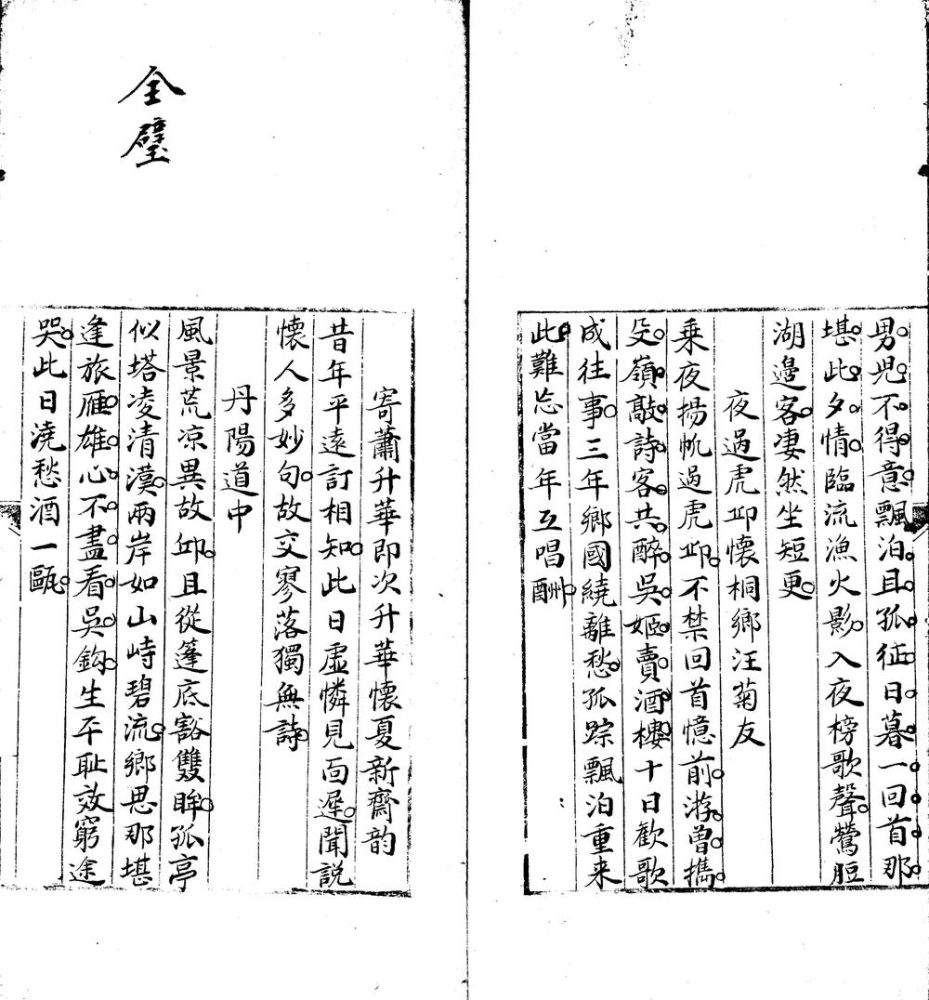 男兒不得意飄泊且孤征日暮一回首那
堪此夕情臨流漁火影入夜榜歌聲鶯脰
湖邊客凄然坐短更
夜過虎邱懷桐鄉汪菊友
乘夜揚帆過虎邱不禁回首憶前游曾攜
父嶺敲詩客共醉吳姬賣酒樓十日歡歌
成往事三年鄉國繞離愁孤踪飄泊重来
此難忘當年互唱酬
全璧
寄蕭升華即次升華懷夏新齋韵
昔年平遠訂相知此日虛憐見面遲聞説
懷人多妙句故交寥落獨無詩
丹陽道中
風景荒凉異故邱且從篷底豁雙眸孤亭
似塔凌清漠兩岸如山峙碧流鄉思那堪
逢旅雁雄心不盡看吳鈎生平耻效窮途
哭此日澆愁酒一甌